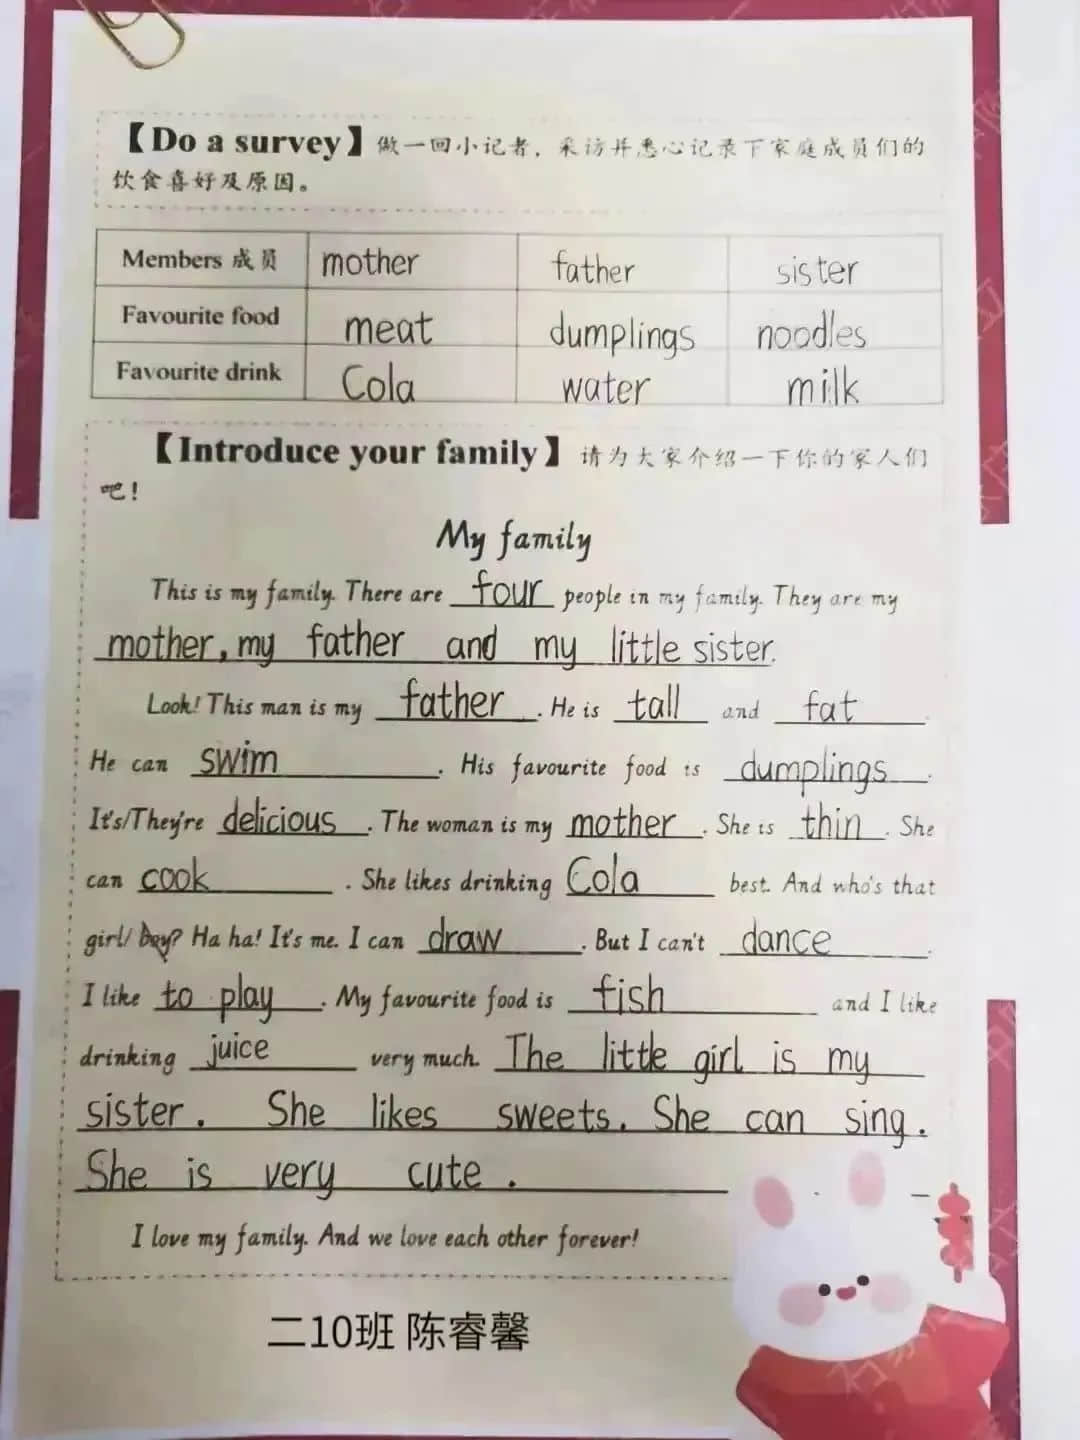 【Do a survey】做一回小记者，采访并悉心记录下家庭成员们的
饮食喜好及原因。
Members 成员 mother father sister
Favourite food meat dumplings noodles
Favourite drink Cola water milk
【Introduce your family】请为大家介绍一下你的家人们
吧！
My family
This is my family. There are four people in my family. They are my
mother, my father and my little sister.
Look! This man is my father. He is tall and fat.
He can swim. His favourite food is dumplings.
It's/They're delicious. The woman is my mother. She is thin. She
can cook. She likes drinking Cola best. And who's that
girl/ boy? Ha ha! It's me. I can draw. But I can't dance.
I like to play. My favourite food is fish and I like
drinking juice very much. The little girl is my
sister. She likes sweets. She can sing.
She is very cute.
I love my family. And we love each other forever!
二10班 陈睿馨